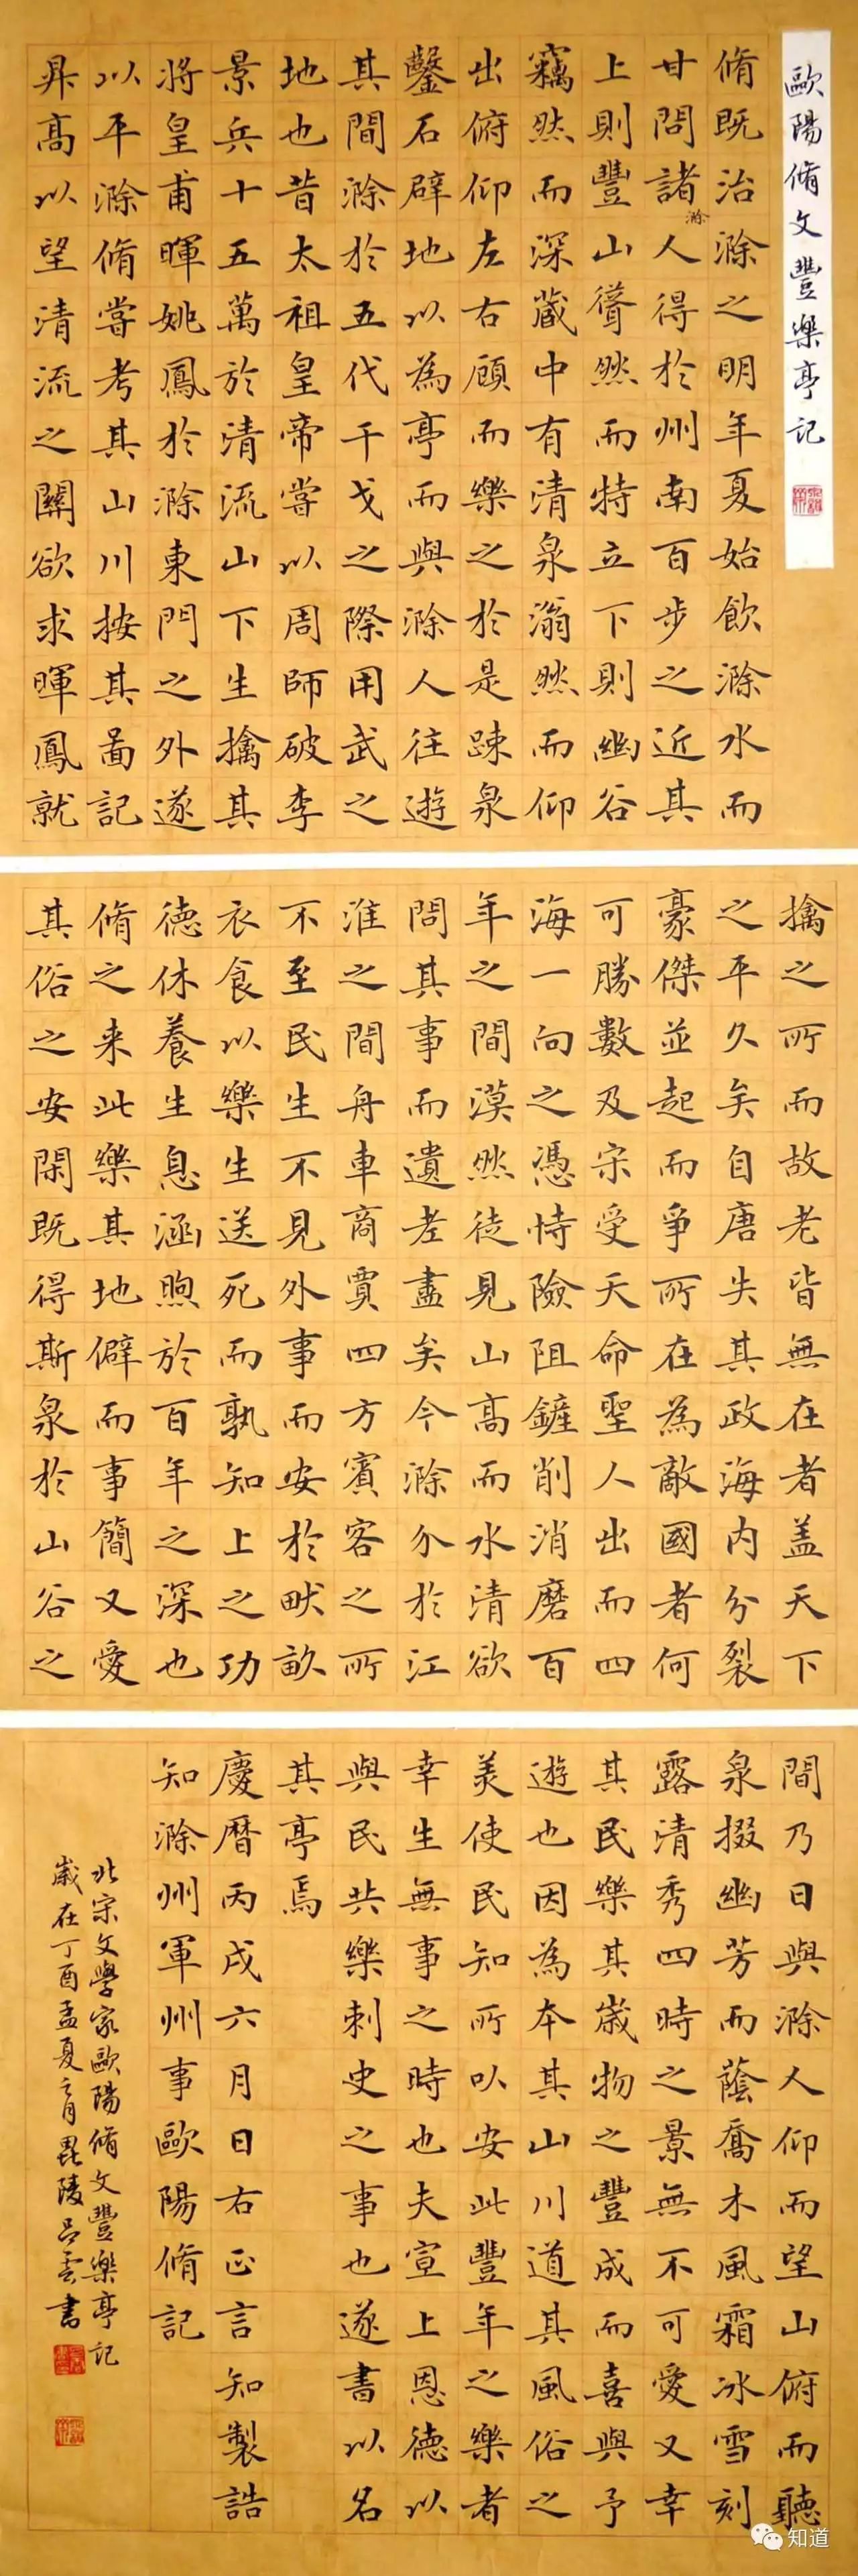 歐陽脩文豐樂亭記
脩既治滁之明年夏始飲滁水而
甘問諸滁人得於州南百步之近其
上則豐山聳然而特立下則幽谷
竊然而深藏中有清泉滃然而仰
出俯仰左右顧而樂之於是踈泉
鑿石辟地以為亭而與滁人往遊
其間滁於五代干戈之際用武之
地也昔太祖皇帝嘗以周師破李
景兵十五萬於清流山下生擒其
將皇甫暉姚鳳於滁東門之外遂
以平滁脩嘗考其山川按其圖記
昇高以望清流之關欲求暉鳳就
擒之所而故老皆無在者盖天下
之平久矣自唐失其政海内分裂
豪傑並起而爭所在為敵國者何
可勝數及宋受天命聖人出而四
海一向之憑恃險阻鏟削消磨百
年之間漠然徒見山高而水清欲
問其事而遺老盡矣今滁介於江
淮之間舟車商賈四方賓客之所
不至民生不見外事而安於畎畝
衣食以樂生送死而孰知上之功
德休養生息涵煦於百年之深也
脩之来此樂其地僻而事簡又愛
其俗之安閑既得斯泉於山谷之
間乃日與滁人仰而望山俯而聽
泉掇幽芳而蔭喬木風霜冰雪刻
露清秀四時之景無不可愛又幸
其民樂其歲物之豐成而喜與予
遊也因為本其山川道其風俗之
美使民知所以安此豐年之樂者
幸生無事之時也夫宣上恩德以
與民共樂刺史之事也遂書以名
其亭焉
慶曆丙戌六月日右正言知製誥
知滁州軍州事歐陽脩記
北宋文學家歐陽脩文豐樂亭記
歲在丁酉孟夏二月毘陵呂雲書
知道